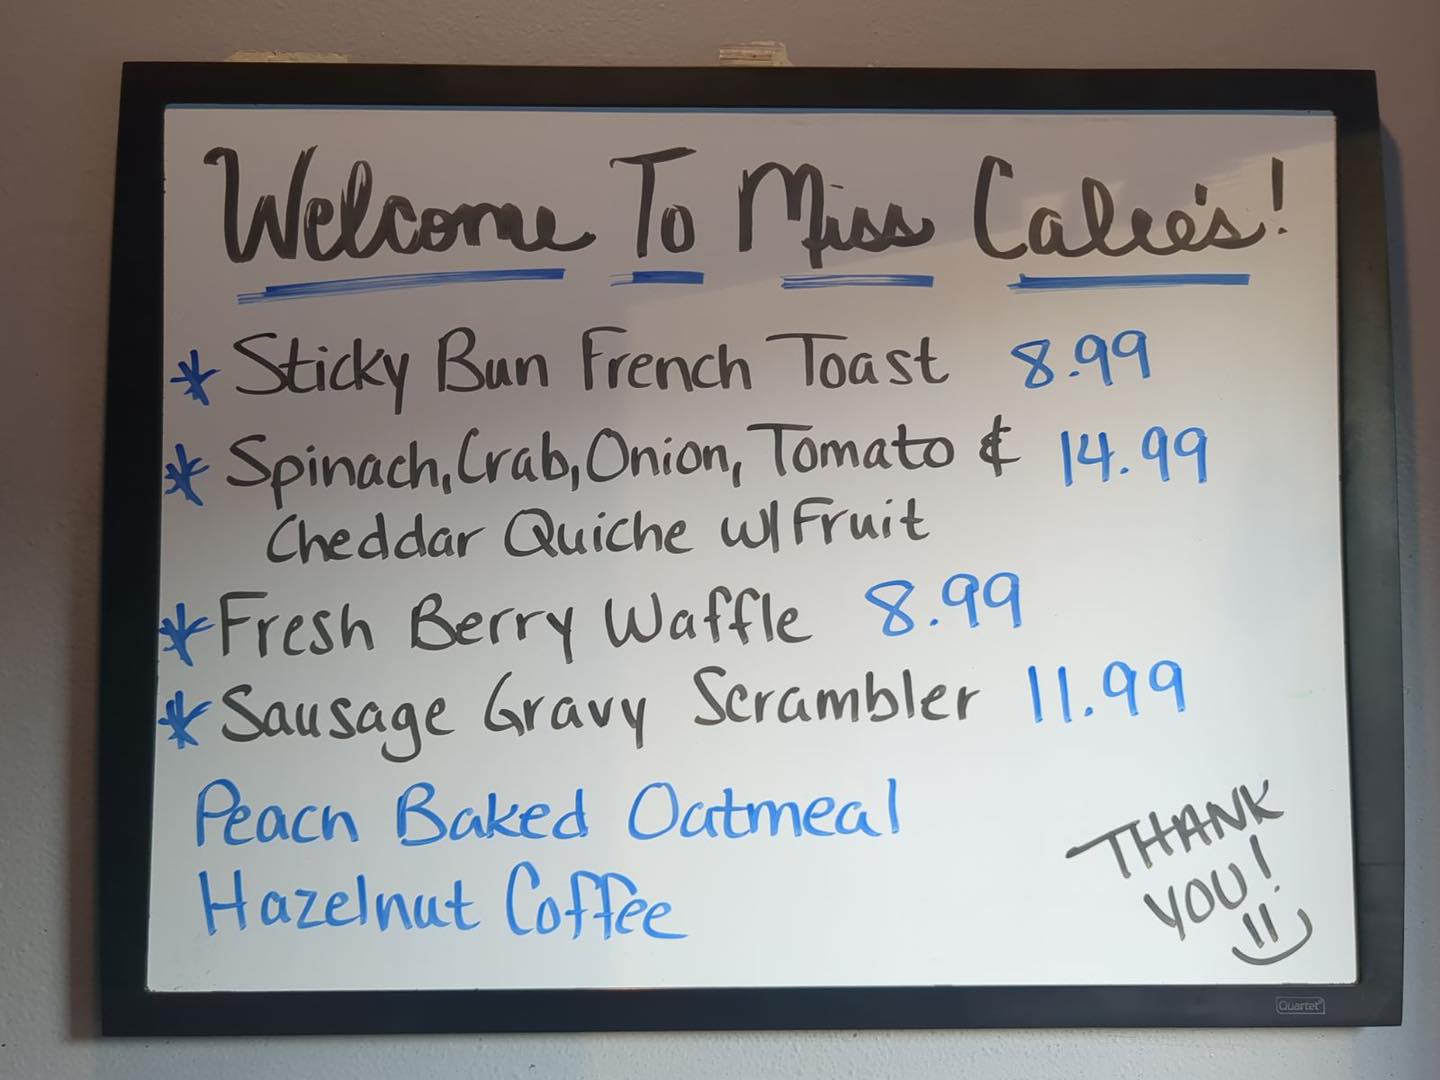 Welcome To Miss Calee's!
* Sticky Bun French Toast 8.99
* Spinach, Crab, Onion, Tomato & 14.99
Cheddar Quiche w/ Fruit
* Fresh Berry Waffle 8.99
* Sausage Gravy Scrambler 11.99
Peach Baked Oatmeal
Hazelnut Coffee
THANK
YOU!
Quartet